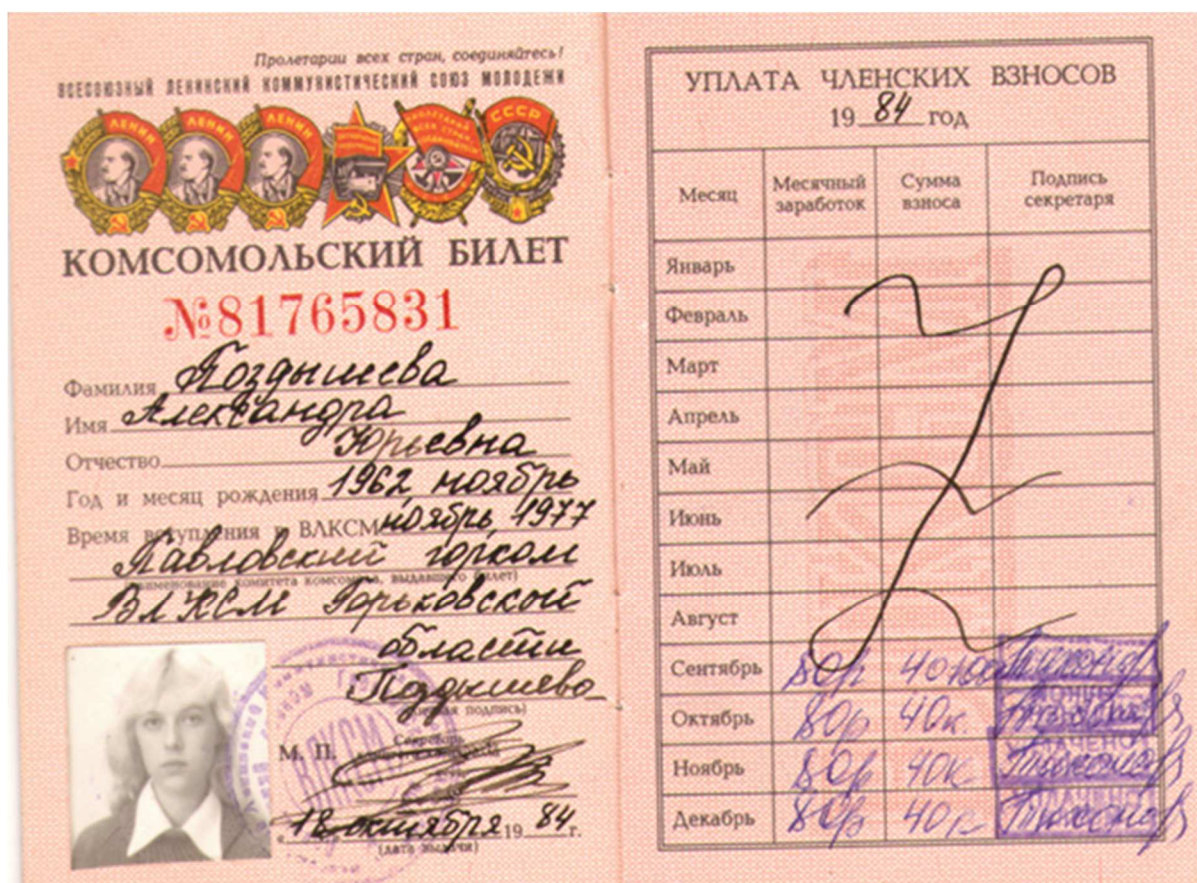 Пролетарии всех стран, соединяйтесь!
ВСЕСОЮЗНЫЙ ЛЕНИНСКИЙ КОММУНИСТИЧЕСКИЙ СОЮЗ МОЛОДЕЖИ
ЛЕНИН ЛЕНИН ЛЕНИН ПРОЛЕТАРИИ ВСЕХ СТРАН СОЕДИНЯЙТЕСЬ СССР
КОМСОМОЛЬСКИЙ БИЛЕТ
№81765831
Фамилия Поздышева
Имя Александра
Отчество Юрьевна
Год и месяц рождения 1962, ноябрь
Время вступления в ВЛКСМ ноябрь, 1977
Павловский горком
(наименование комитета комсомола, выдавшего билет)
ВЛКСМ Горьковской
области
Поздышева
(личная подпись)
ВЛКСМ
М. П. Секретарь
«18» октября 1984 г.
(дата выдачи)
УПЛАТА ЧЛЕНСКИХ ВЗНОСОВ
1984 год
Месяц Месячный заработок Сумма взноса Подпись секретаря
Январь
Февраль
Март
Апрель
Май
Июнь
Июль
Август
Сентябрь 80р 40к Тихонов
Октябрь 80р 40к. Тихонов
Ноябрь 80р 40к. Тихонов
Декабрь 80р 40к Тихонов